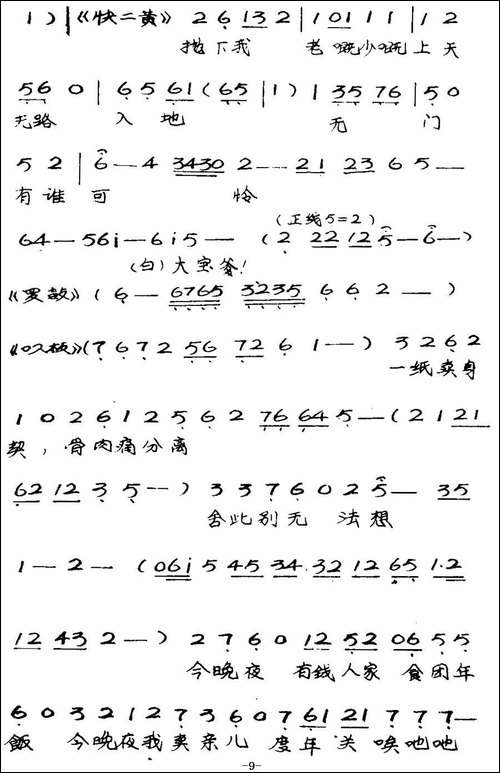 1 ) | 《快二黄》 2 6 13 2 | 1 01 1 1 | 1 2
抛下我 老嘅少嘅上天
56 0 | 6 5 61 ( 65 | 1 ) 1 35 76 | 5 0
无路 入地 无门
5 2 | 6 — 4 3430 2 — — 21 23 6 5 — —
有谁可怜
64 — 56i — 6i5 — ( 2 22 12 5 — 6 — )
(正线5=2)
(白)大宝爹!
《罗鼓》 ( 6 — 6765 3235 6 6 2 — — )
( 7 6 7 2 56 72 6 1 — — ) 3 2 6 2
一纸卖身
1 0 2 6 1 2 5 6 2 76 64 5 — ( 2 1 21
契，骨肉痛分离
62 12 3 5 — — ) 3 3 7 6 0 2 5 — 35
舍此别无 法想
1 — 2 — ( 06i 5 45 34.32 12 65 1.2
12 43 2 — — ) 2 7 6 0 12 52 06 5 5
今晚夜 有钱人家 食团年
6 0 3 2 1 2 7 3 6 0 7 61 21 7 7 7 —
飯 今晚夜我卖亲儿 度年关 唉吔吔
-9-